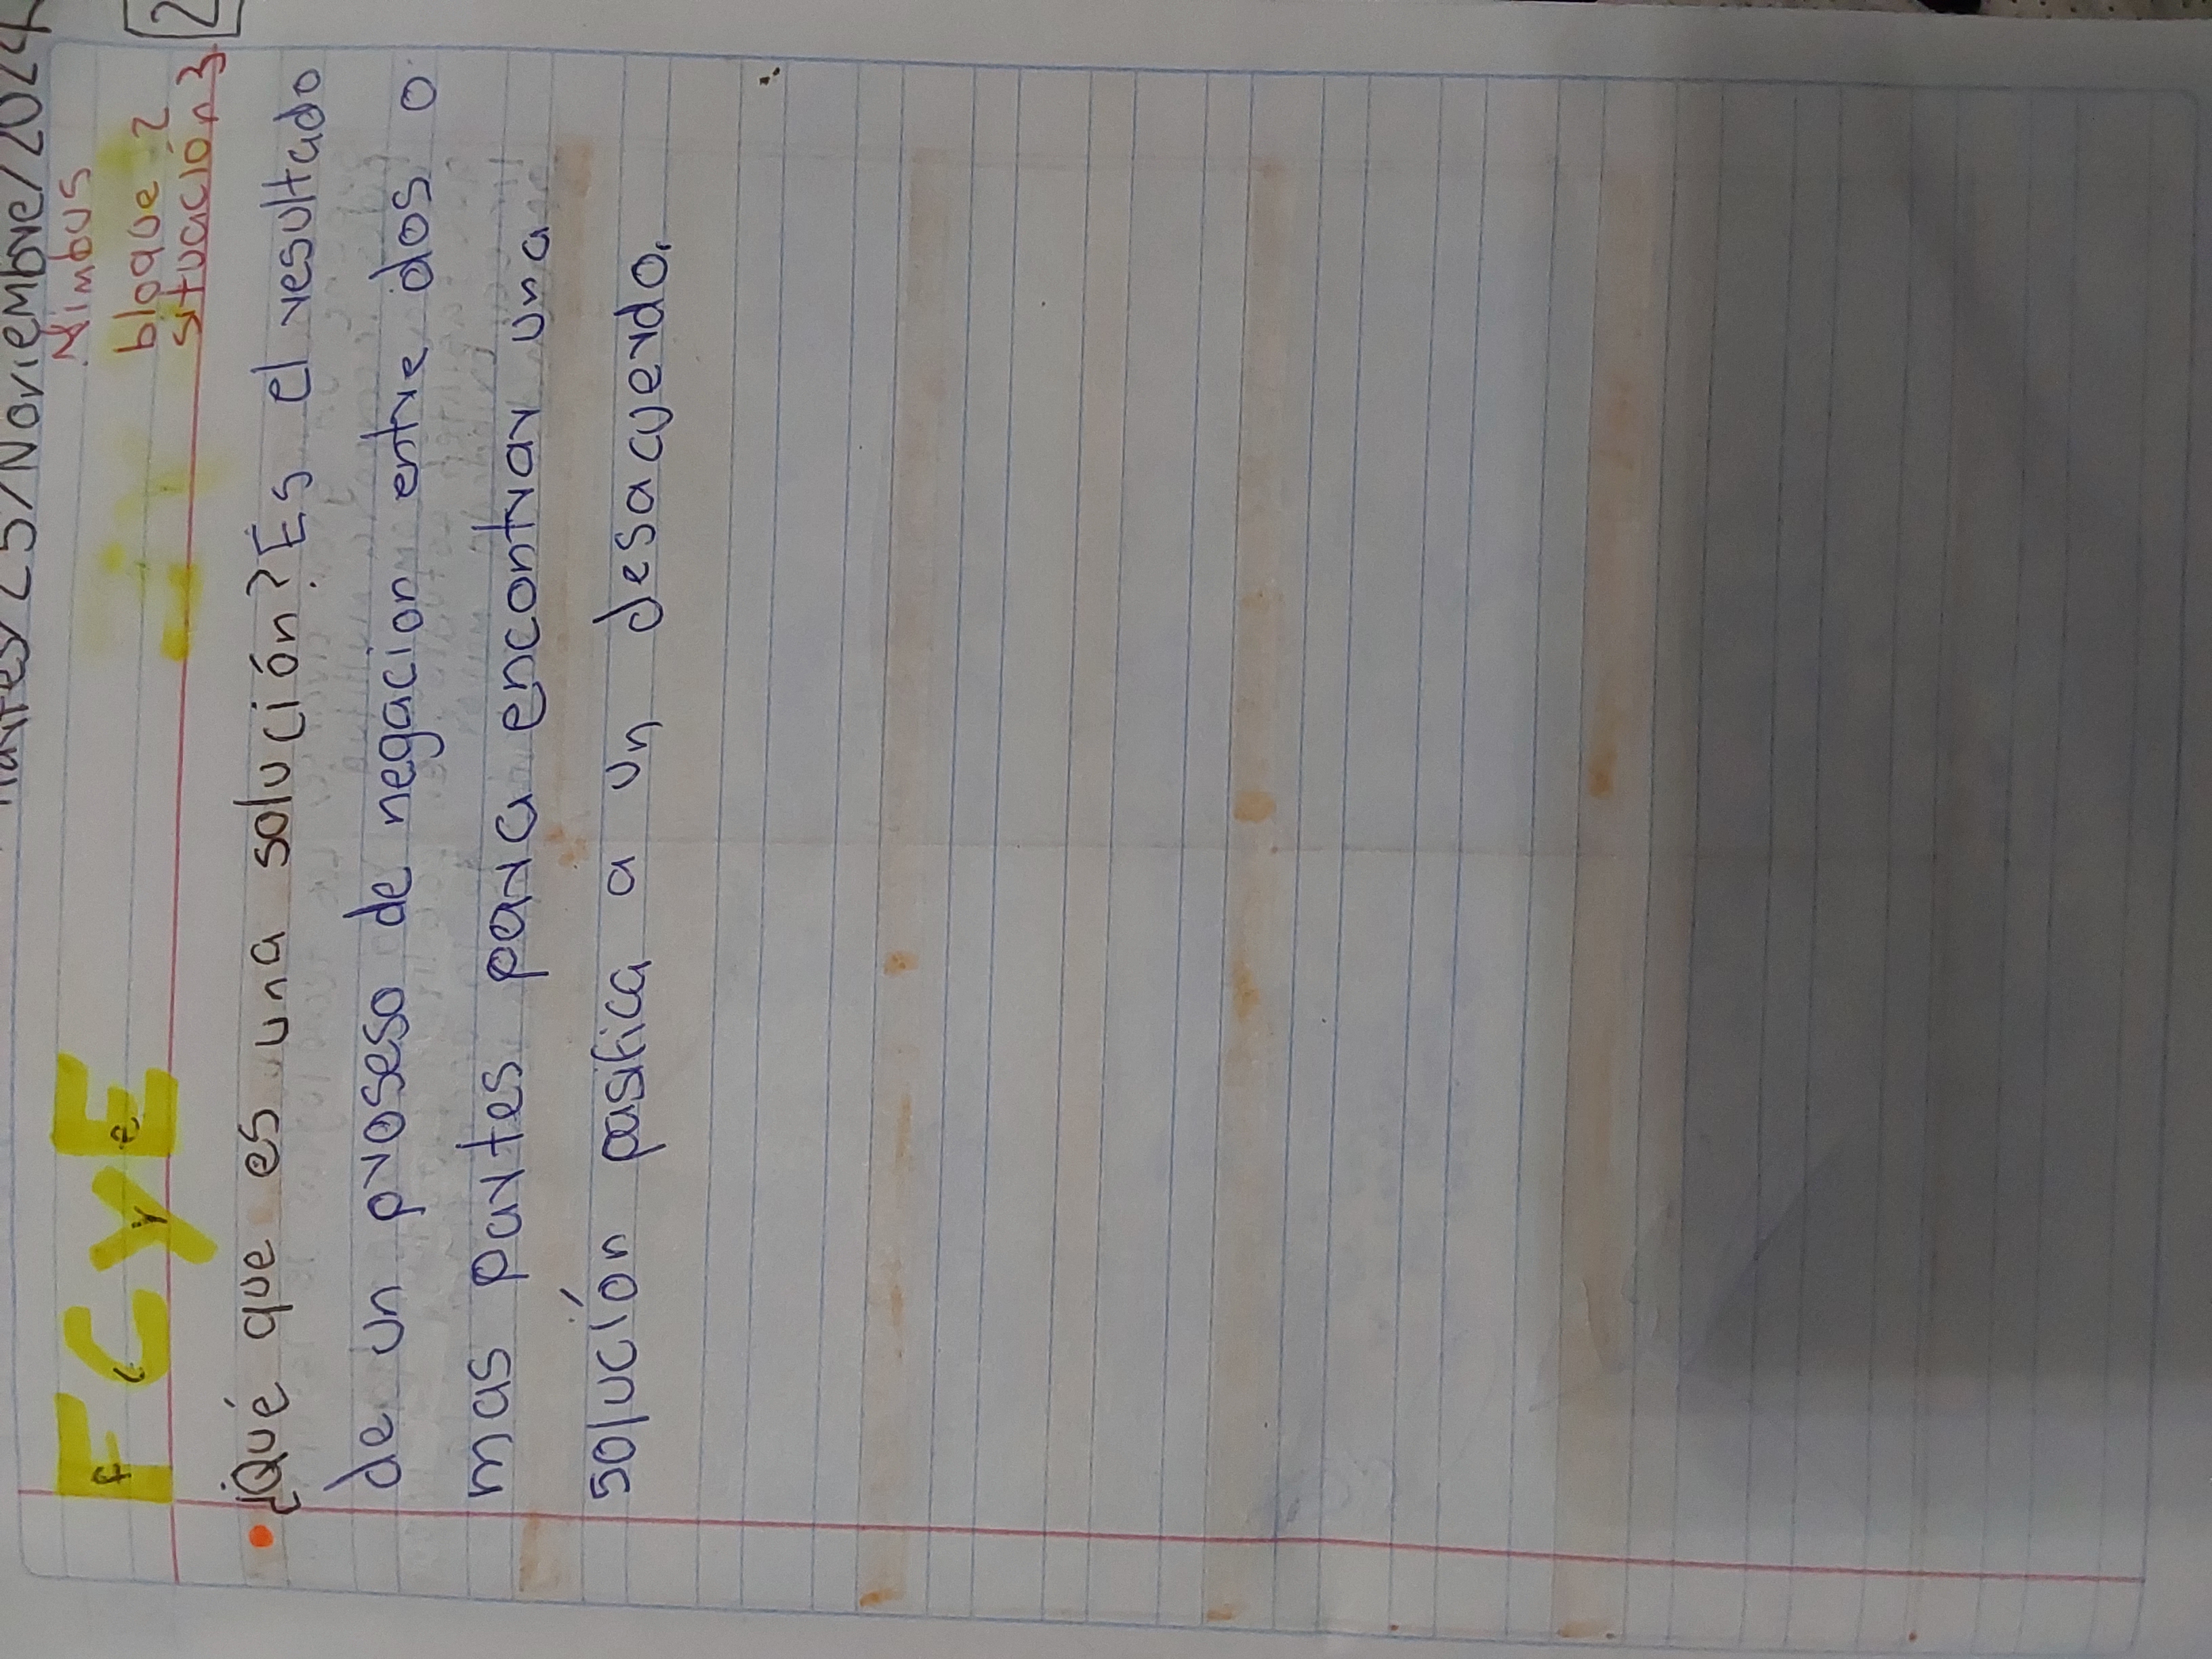 /25/Noviembre/2024
Nimbus
FCyE
bloque 2
situación 3
¿Qué que es una solución? Es el resultado
de un proseso de negacion entre dos o
mas partes para encontrar una
solución pasifica a un desacuerdo.